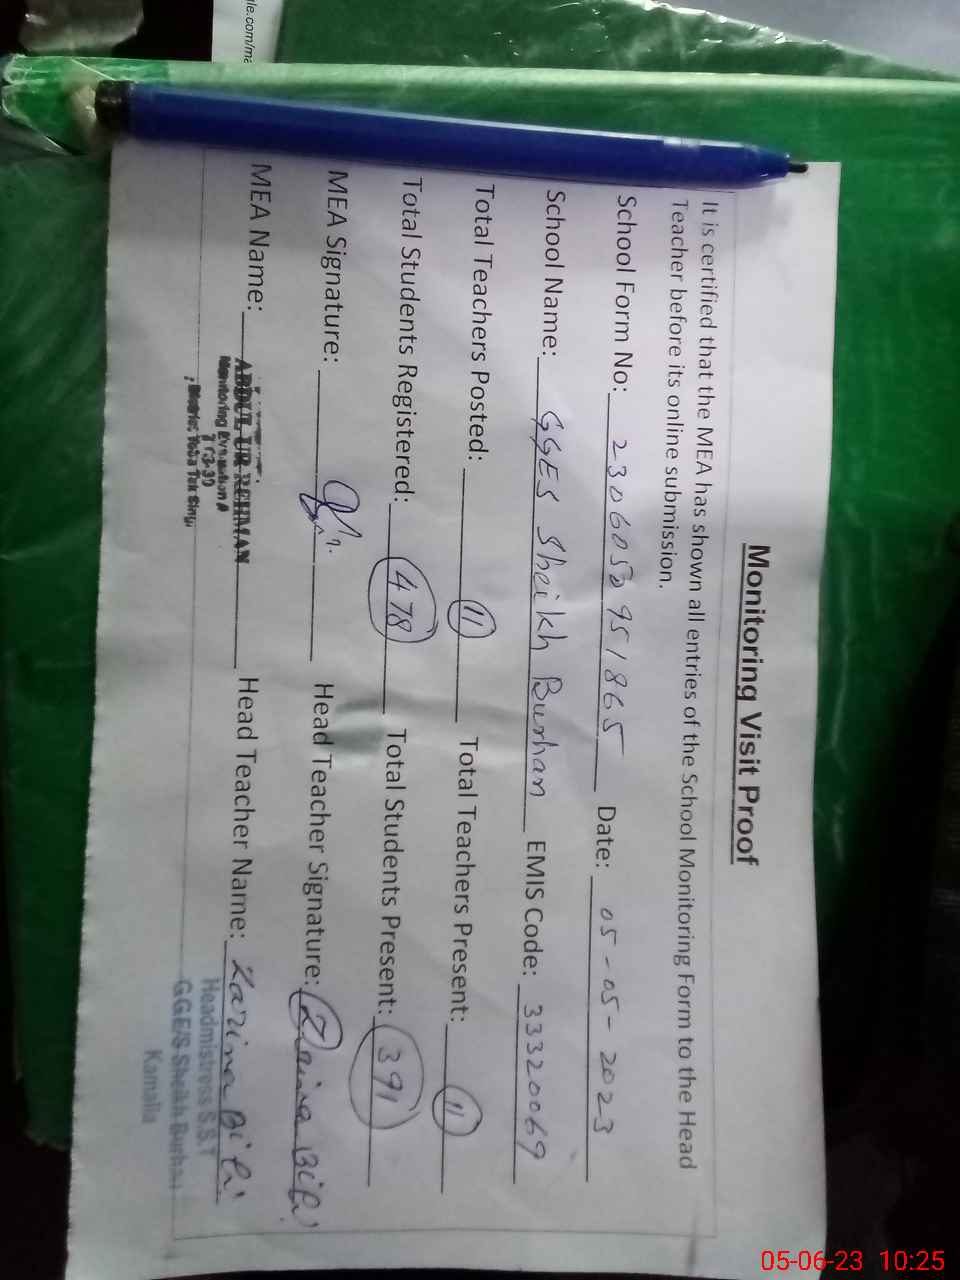 Monitoring Visit Proof
It is certified that the MEA has shown all entries of the School Monitoring Form to the Head
Teacher before its online submission.
School Form No: 230605 951865 Date: 05-05-2023
School Name: GGES Sheikh Burhan EMIS Code: 33320069
Total Teachers Posted: 11 Total Teachers Present: 11
Total Students Registered: 478 Total Students Present: 391
MEA Signature: Head Teacher Signature: Zarina Bibi
MEA Name: ABDUL UR REHMAN Head Teacher Name: Zarina Bibi
Monitoring Evaluation A
District Toba Tek Singh
Headmistress S.S.T
GGE/S Sheikh Burhan
Kamalia
05-06-23 10:25